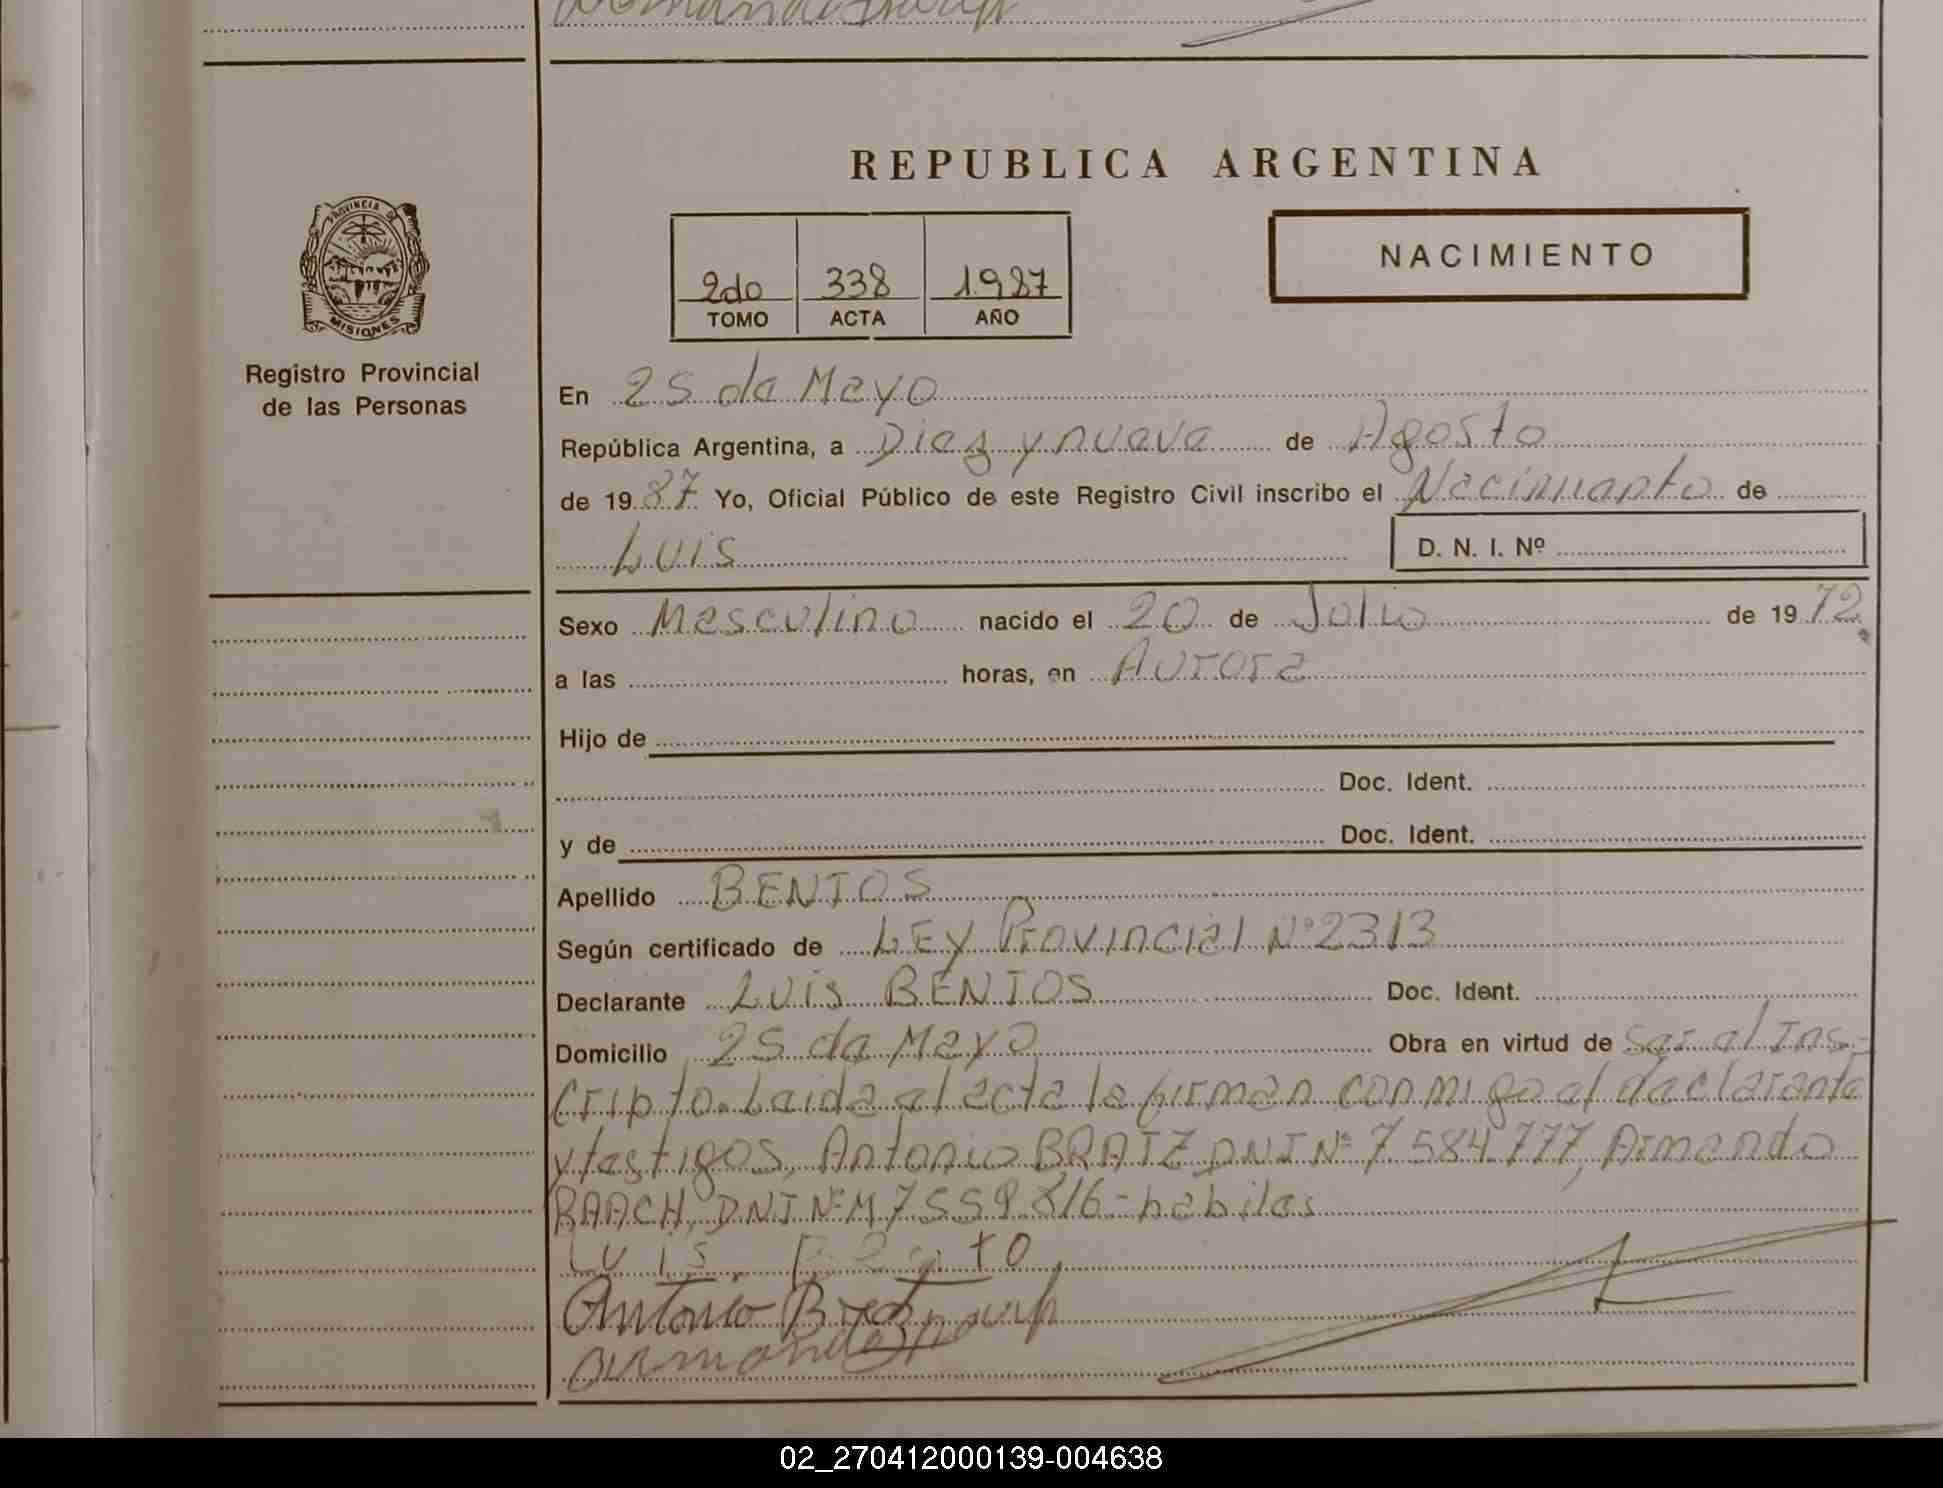 REPUBLICA ARGENTINA
PROVINCIA DE
MISIONES
Registro Provincial
de las Personas
2do 338 1.987
TOMO ACTA AÑO
NACIMIENTO
En 25 de Mayo
República Argentina, a Diez y nueve de Agosto
de 1987 Yo, Oficial Público de este Registro Civil inscribo el Nacimiento de
Luis
D. N. I. Nº
Sexo Masculino nacido el 20 de Julio de 1972
a las horas, en Aurora
Hijo de
Doc. Ident.
y de Doc. Ident.
Apellido BENTOS
Según certificado de LEY Provincial Nº 2313
Declarante Luis BENTOS Doc. Ident.
Domicilio 25 de Mayo Obra en virtud de Ser el Ins-
cripto. Leida el acta la firman conmigo el declarante
y testigos, Antonio DNI Nº 7.584.777, Armando
RAACH, DNI Nº M 7.559.816 - habiles
Luis
Antonio
Armando
02_270412000139-004638